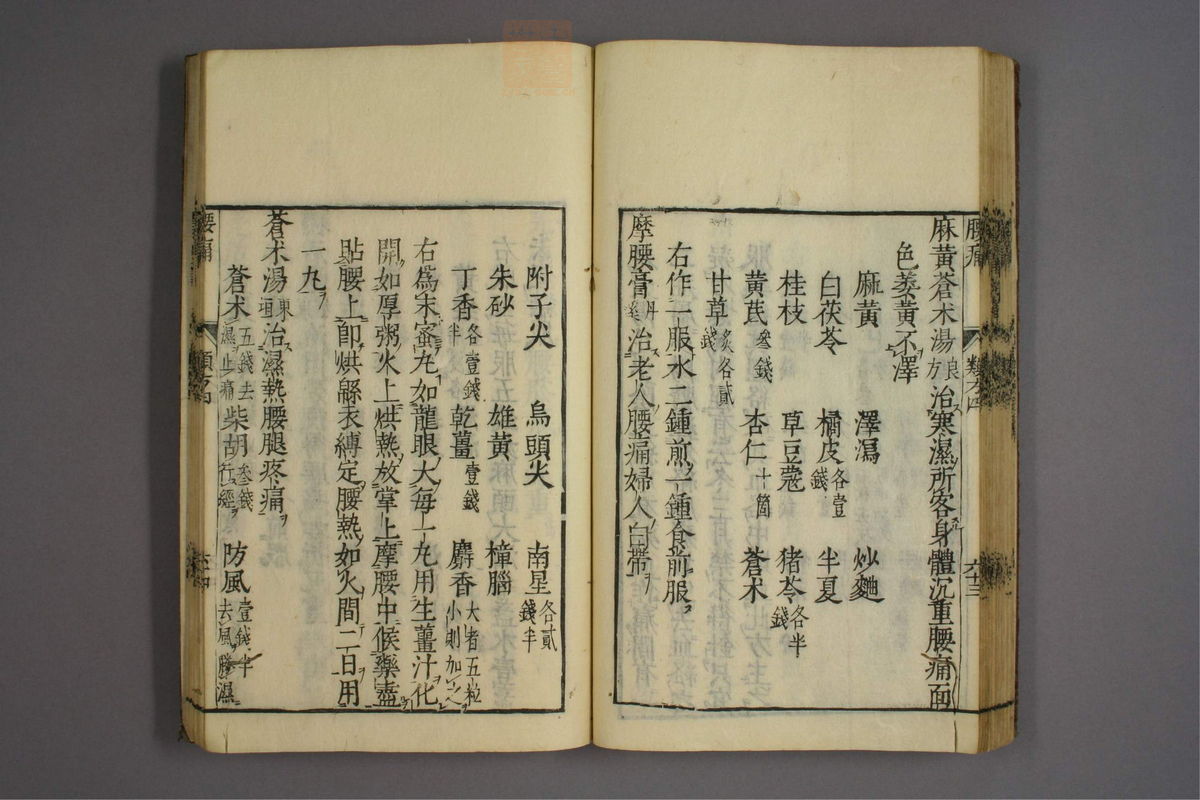 腰痛 類方四 六十三
麻黃蒼术湯良方治寒濕所客身體沉重腰痛面
色萎黃不澤
麻黃 澤瀉 炒麯
白茯苓 橘皮各壹錢 半夏
桂枝 草豆蔻 猪苓各半錢
黃芪叄錢 杏仁十箇 蒼术
甘草炙各貳錢
右作一服水二鍾煎一鍾食前服
摩腰膏丹溪治老人腰痛婦人白帶
附子尖 烏頭尖 南星各貳錢半
朱砂 雄黃 樟腦
丁香各壹錢半 乾薑壹錢 麝香大者五粒小則加之
右爲末蜜丸如龍眼大每一丸用生薑汁化
開如厚粥火上烘熱放掌上摩腰中候藥盡
貼腰上卽烘緜衣縛定腰熱如火間二日用
一丸
蒼术湯東垣治濕熱腰腿疼痛
蒼术五錢去濕止痛 柴胡叄錢行經 防風壹錢半去風勝濕
腰痛 類方四 六十四